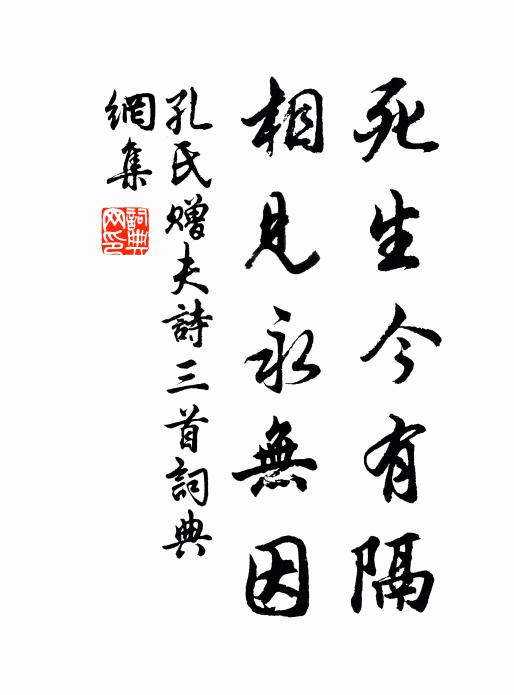 死生今有隔
相見永無因
孔氏贈夫詩三首詞典
網集
詞典
网印